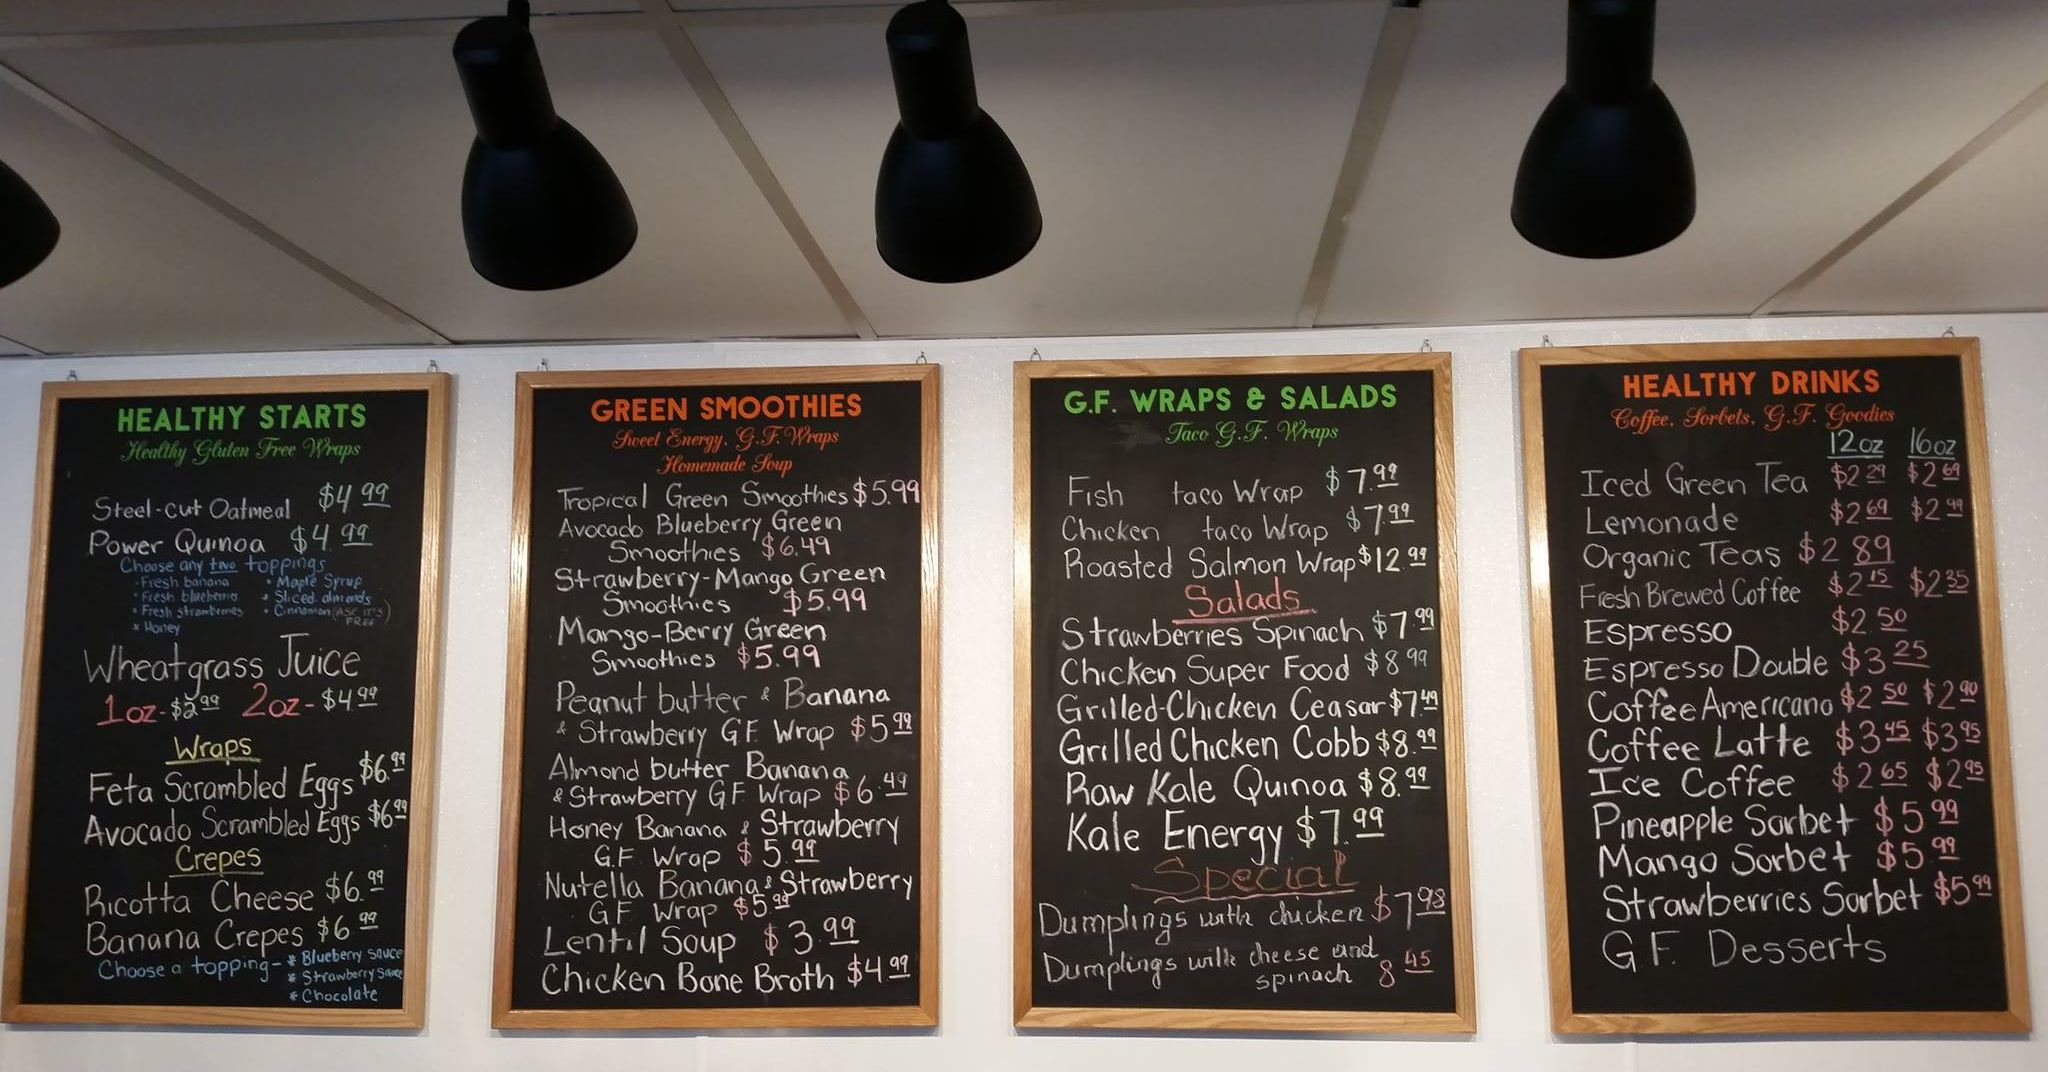 HEALTHY STARTS
Healthy Gluten Free Wraps
Steel-cut Oatmeal $4.99
Power Quinoa $4.99
Choose any two toppings
-Fresh banana * Maple Syrup
-Fresh blueberris * Sliced almonds
* Fresh strawberries * Cinnamon (ASK IT'S FREE)
* Honey
Wheatgrass Juice
1oz-$2.99 2oz-$4.99
Wraps
Feta Scrambled Eggs $6.99
Avocado Scrambled Eggs $6.99
Crepes
Ricotta Cheese $6.99
Banana Crepes $6.99
Choose a topping- * Blueberry sauce
* Strawberry sauce
* Chocolate
GREEN SMOOTHIES
Sweet Energy, G.F. Wraps
Homemade Soup
Tropical Green Smoothies $5.99
Avocado Blueberry Green
Smoothies $6.49
Strawberry-Mango Green
Smoothies $5.99
Mango-Berry Green
Smoothies $5.99
Peanut butter & Banana
& Strawberry G.F. Wrap $5.99
Almond butter Banana
& Strawberry G.F. Wrap $6.49
Honey Banana & Strawberry
G.F. Wrap $5.99
Nutella Banana & Strawberry
G.F. Wrap $5.99
Lentil Soup $3.99
Chicken Bone Broth $4.99
G.F. WRAPS & SALADS
Taco G.F. Wraps
Fish taco Wrap $7.99
Chicken taco Wrap $7.99
Roasted Salmon Wrap $12.99
Salads
Strawberries Spinach $7.99
Chicken Super Food $8.99
Grilled-Chicken Ceasar $7.49
Grilled Chicken Cobb $8.99
Raw Kale Quinoa $8.99
Kale Energy $7.99
Special
Dumplings with chicken $7.98
Dumplings with cheese and
spinach 8.45
HEALTHY DRINKS
Coffee, Sorbets, G.F. Goodies
12oz 16oz
Iced Green Tea $2.29 $2.69
Lemonade $2.69 $2.99
Organic Teas $2.89
Fresh Brewed Coffee $2.15 $2.35
Espresso $2.50
Espresso Double $3.25
Coffee Americano $2.50 $2.90
Coffee Latte $3.45 $3.95
Ice Coffee $2.65 $2.95
Pineapple Sorbet $5.99
Mango Sorbet $5.99
Strawberries Sorbet $5.99
G.F. Desserts